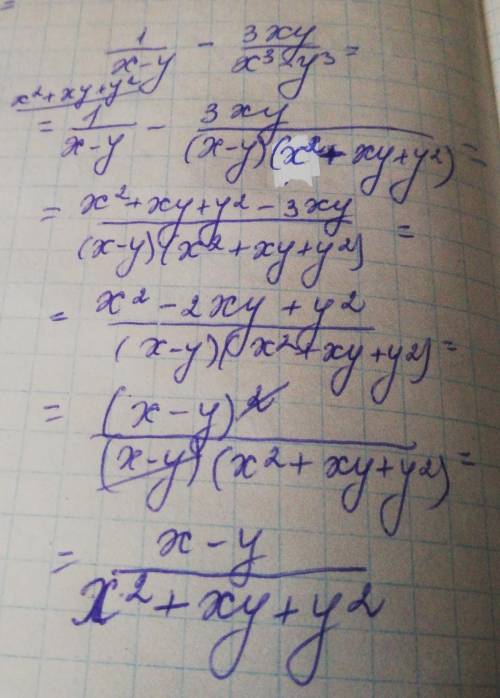 1/(x-y) - 3xy/(x³-y³) =
x²+xy+y²
= 1/(x-y) - 3xy/((x-y)(x²+xy+y²)) =
= (x²+xy+y²-3xy)/((x-y)(x²+xy+y²)) =
= (x²-2xy+y²)/((x-y)(x²+xy+y²)) =
= (x-y)²/((x-y)(x²+xy+y²)) =
= (x-y)/(x²+xy+y²)